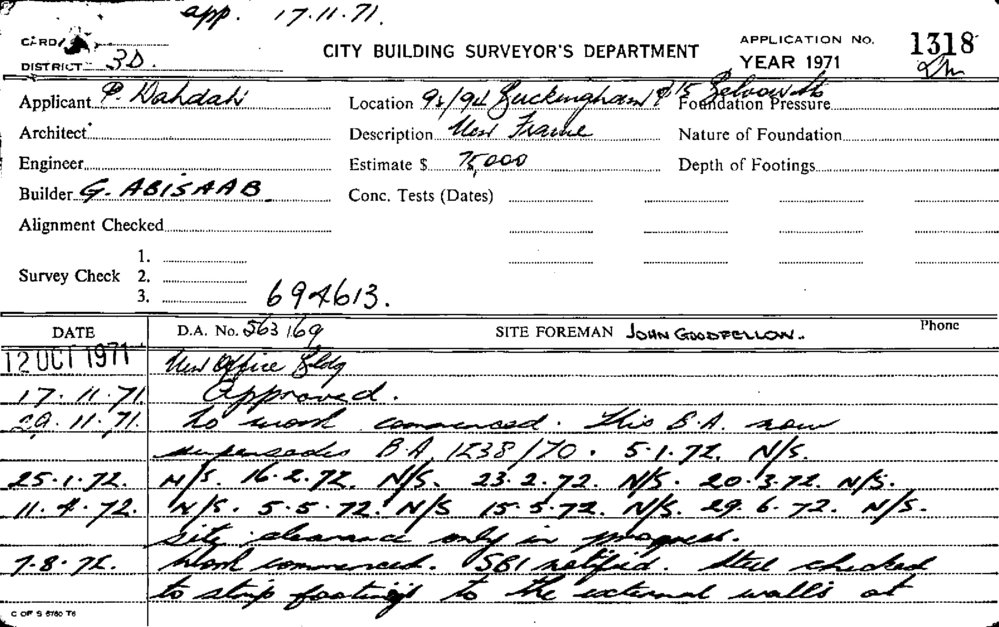 app. 17.11.71.
CARD
DISTRICT 3D.
CITY BUILDING SURVEYOR'S DEPARTMENT
APPLICATION No. 1318
YEAR 1971
Applicant P. Dahdah Location 92/94 Buckingham & 15 Belvoir Sts Foundation Pressure
Architect Description New Frame Nature of Foundation
Engineer Estimate $ 75,000 Depth of Footings
Builder G. ABISAAB Conc. Tests (Dates)
Alignment Checked
1.
Survey Check 2.
3.
694613.
DATE D.A. No. 563/69 SITE FOREMAN JOHN GOODFELLOW. Phone
12 OCT 1971 New Office Bldg
17.11.71. Approved.
29.11.71. No work commenced. This B.A. now
supersedes B.A. 1238/70. 5.1.72. N/S.
25.1.72. N/S. 16.2.72. N/S. 23.2.72. N/S. 20.3.72. N/S.
11.4.72. N/S. 5.5.72. N/S 15.5.72. N/S. 29.6.72. N/S.
Site clearance only in progress.
7.8.72. Work commenced. SBI notified. Steel checked
to strip footings to the external walls at
C OF S 5780 T6